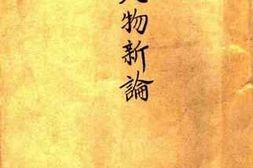 物新論